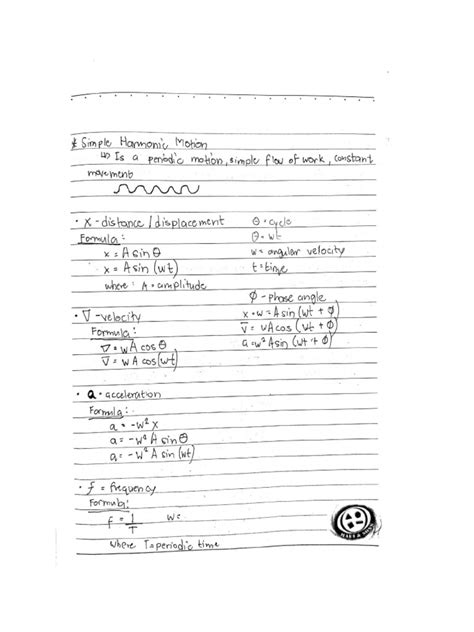 * Simple Harmonic Motion
↳ Is a periodic motion, simple flow of work, constant
movement
• X - distance / displacement
Formula:
x = A sin θ
x = A sin (wt)
where: A = amplitude
θ = cycle
θ = wt
w = angular velocity
t = time
ϕ - phase angle
x = w = A sin (wt + ϕ)
v̅ = wA cos (wt + ϕ)
a = w² A sin (wt + ϕ)
• V̅ - velocity
Formula:
v̅ = wA cos θ
v̅ = wA cos (wt)
• a = acceleration
Formula:
a = -w² x
a = -w² A sin θ
a = -w² A sin (wt)
• f = frequency
Formula:
f = 1/T w =
where T = periodic time